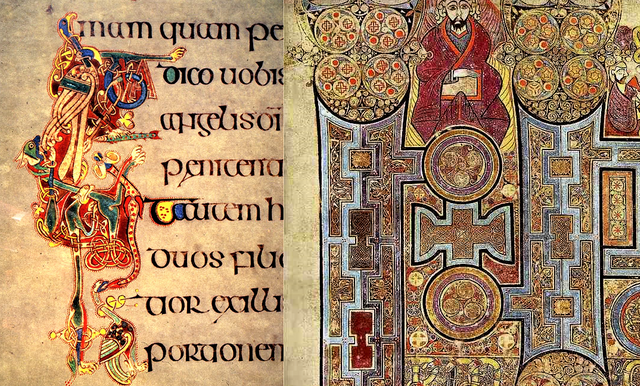 mam quam pe
dico uobis
angelis di
penitenti
autem h
duos filio
tior exilli
portionem